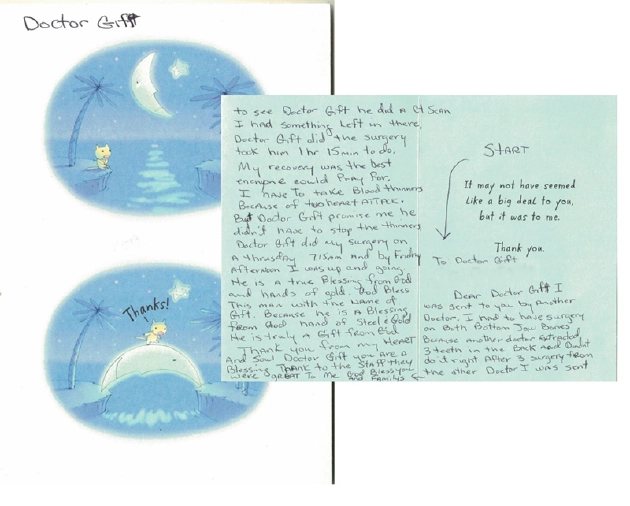 Doctor Gift
Thanks!
START
It may not have seemed
like a big deal to you,
but it was to me.
Thank you.
To Doctor Gift
Dear Doctor Gift I
was sent to you by Another
Doctor. I had to have surgery
on Both Bottom Jaw Bones
Because another doctor extracted
3 teeth in the Back and Didnt
do it right After 3 surgery from
the other Doctor I was sent
to see Doctor Gift he did a Ct Scan
I had something left in there,
Doctor Gift did the surgery
took him 1hr 15min to do.
My recovery was the best
could Pray for.
I have to take Blood thinners
Because of two heart ATTACK.
But Doctor Gift promise me he
didn't have to stop the thinners
Doctor Gift did my surgery on
A thrusday 7:15am and by Friday
Afternoon I was up and going
He is a true Blessing from God
and hands of gold God Bless
This man with the Name of
Gift. Because he is A Blessing
from God hand of Steel & Gold
He is truly a Gift from God.
Thank you from my Heart
And Soul Doctor Gift you are a
Blessing Thank to the Staff they
were GREAT To Me God Bless you
and Familys